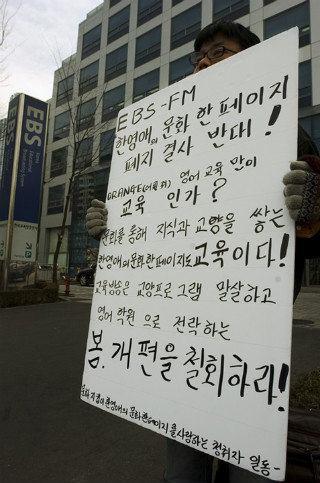 EBS
EBS-FM
한영애의 문화 한 페이지
폐지 결사 반대!
ORANGE 영어 교육 만이
교육 인가?
문화를 통해 지식과 교양을 쌓는
한영애의 문화 한 페이지도 교육이다!
교육방송은 교양프로그램 말살하고
영어 학원 으로 전락하는
봄, 개편을 철회하라!
한영애의 문화 한페이지를 사랑하는 청취자 일동-